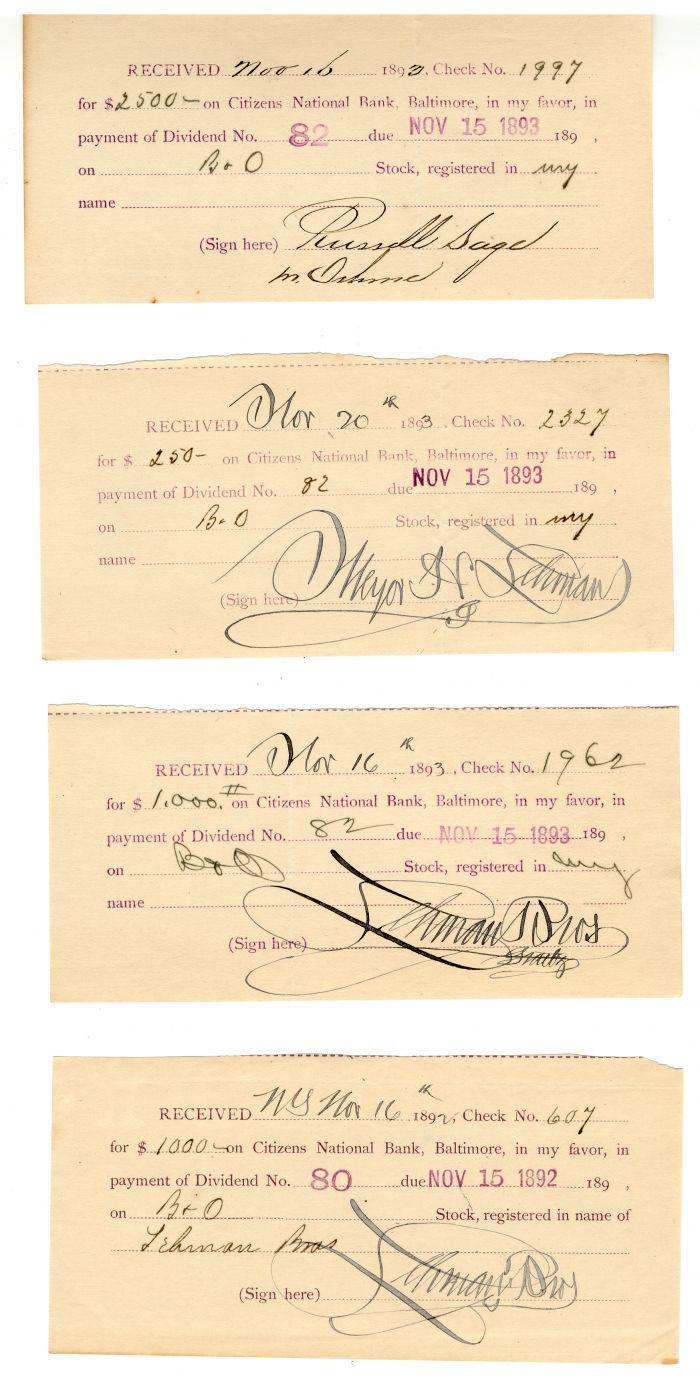 RECEIVED Nov 16 1893. Check No. 1997
for $2500- on Citizens National Bank, Baltimore, in my favor, in
payment of Dividend No. 82 due NOV 15 1893 189 ,
on B+O Stock, registered in my
name
(Sign here) Russell Sage
RECEIVED Nov 20th 1893. Check No. 2327
for $ 250- on Citizens National Bank, Baltimore, in my favor, in
payment of Dividend No. 82 due NOV 15 1893 189 ,
on B+O Stock, registered in my
name
(Sign here) Meyer H Lehman
RECEIVED Nov 16th 1893, Check No. 1962
for $ 1.000. on Citizens National Bank, Baltimore, in my favor, in
payment of Dividend No. 82 due NOV 15 1893 189 ,
on B+O Stock, registered in my
name
(Sign here) Lehman Bros
RECEIVED NY Nov 16th 1892, Check No. 607
for $ 1000- on Citizens National Bank, Baltimore, in my favor, in
payment of Dividend No. 80 due NOV 15 1892 189 ,
on B+O Stock, registered in name of
Lehman Bros
(Sign here) Lehman Bros